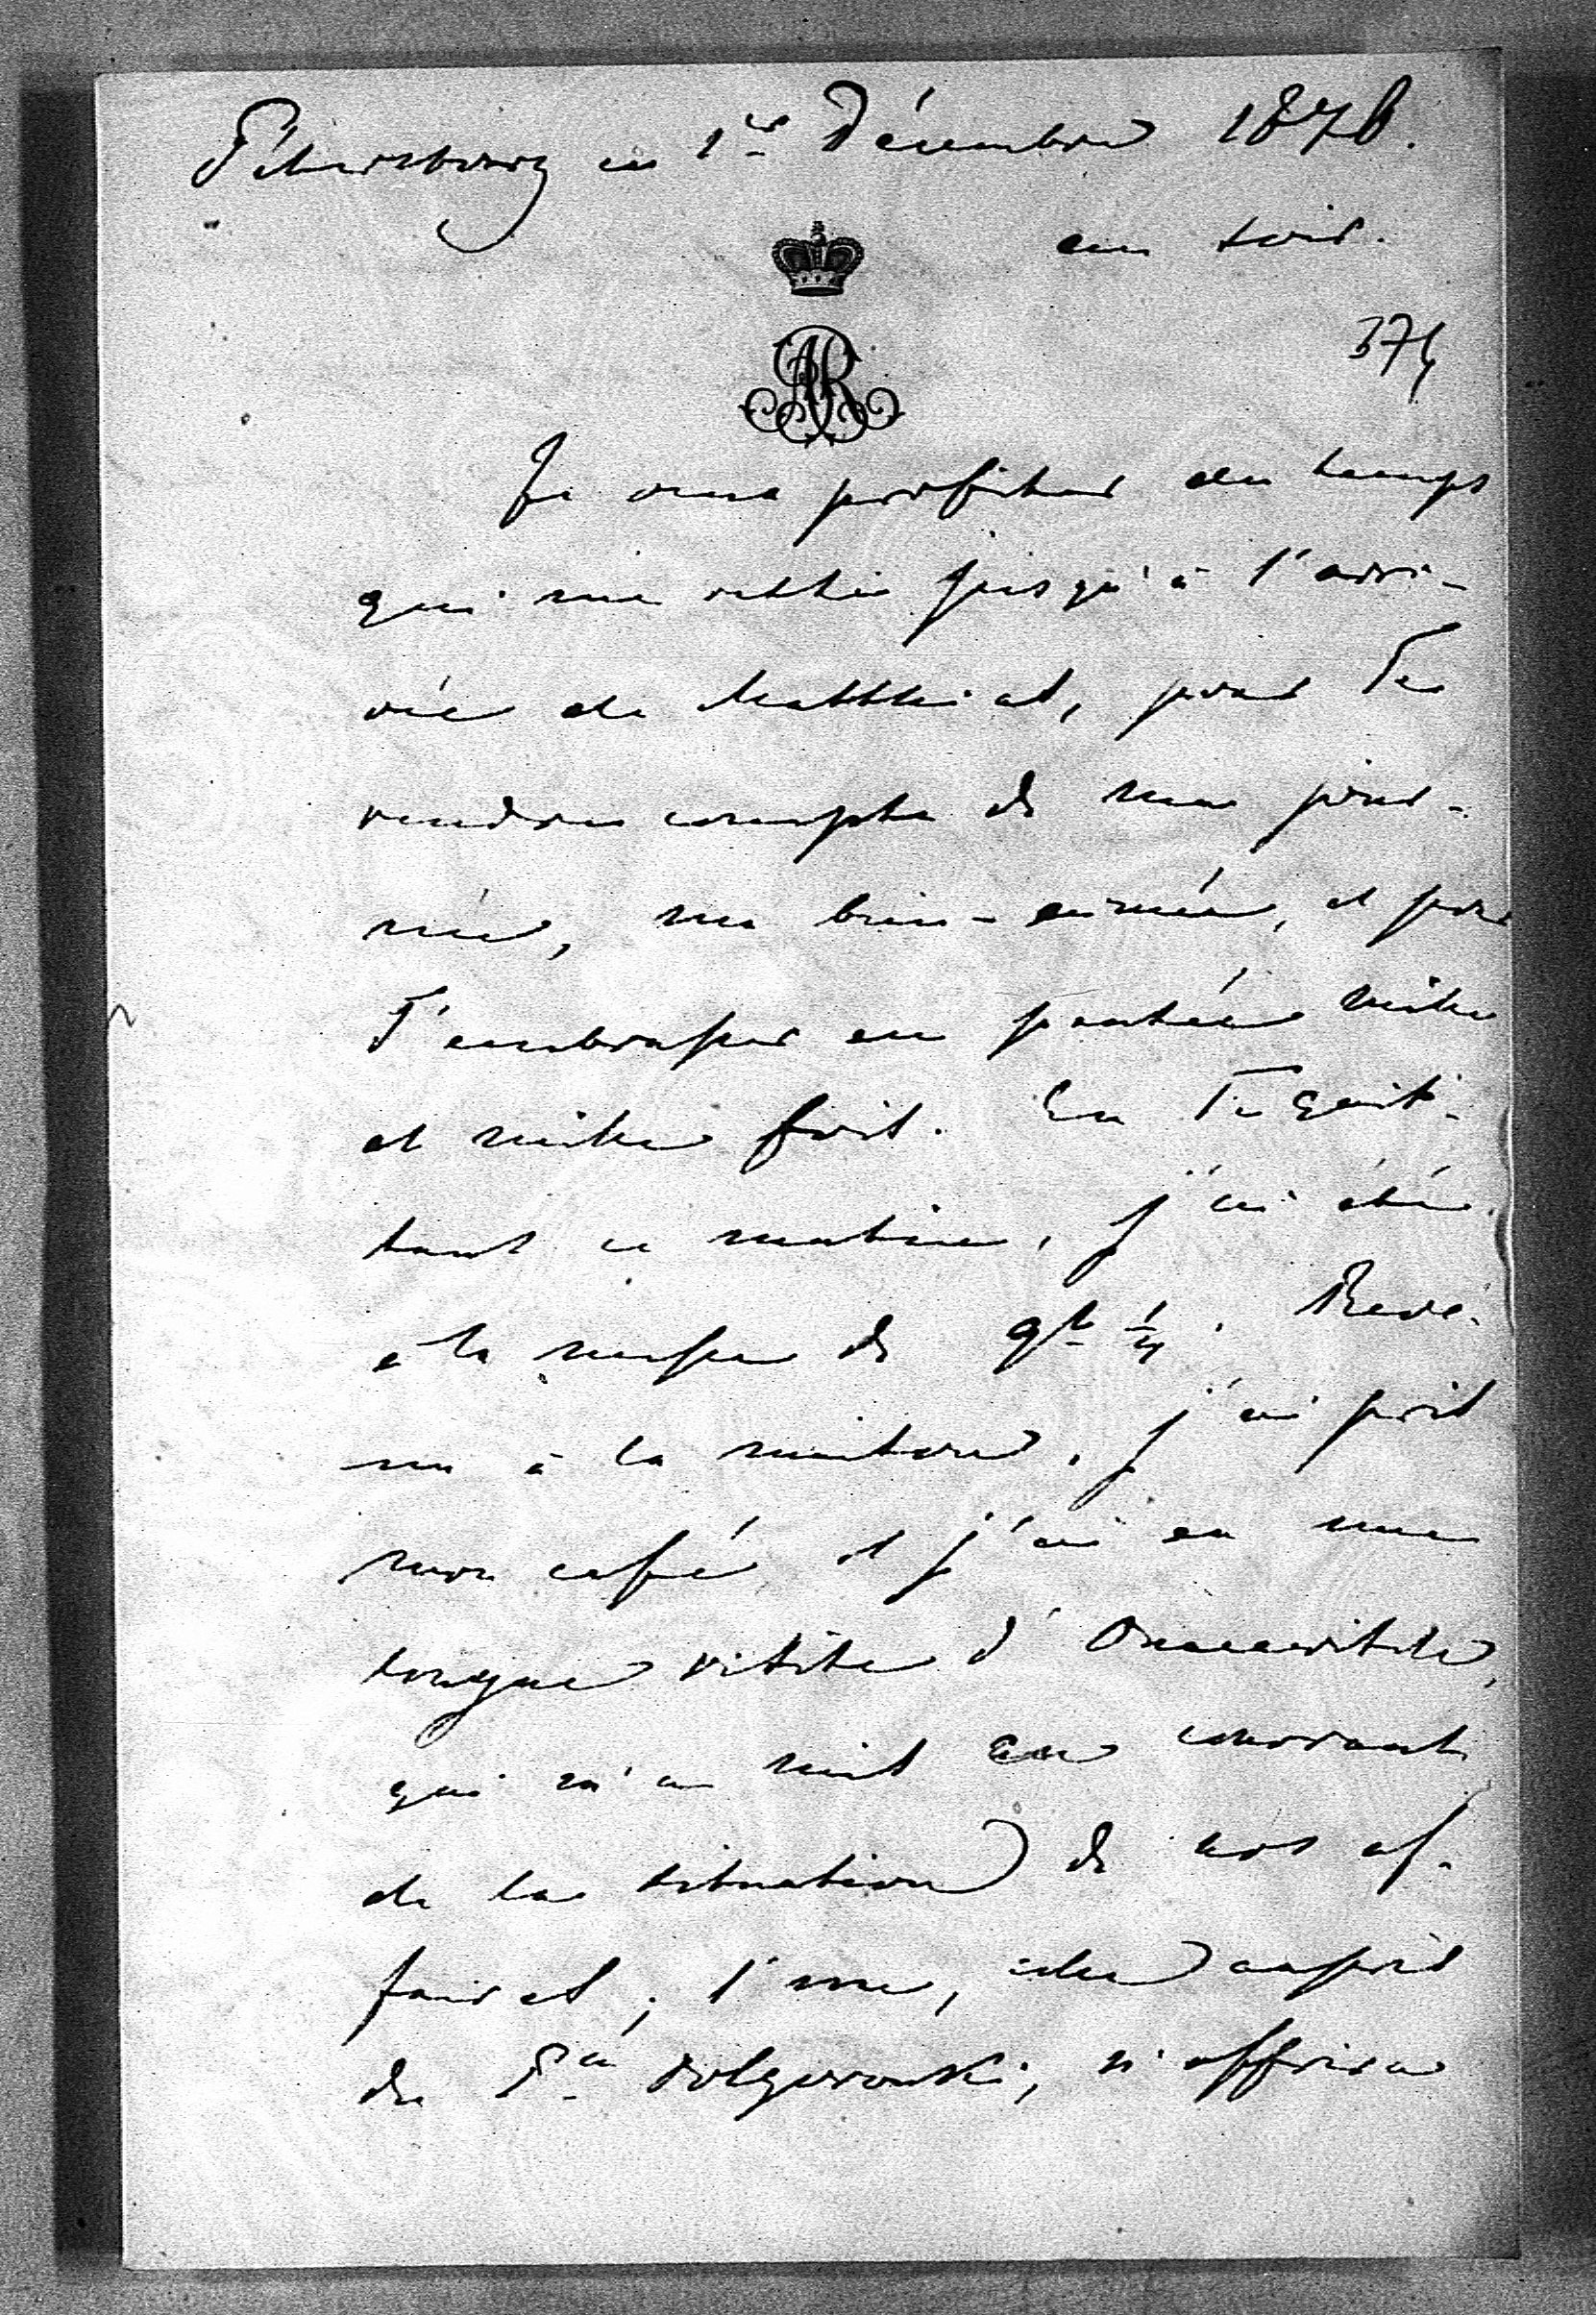 Pétersbourg ce 1er Décembre 1878.
au soir.
AR
374
Je veux profiter du temps
qui me reste jusqu'à l'arri-
vée de Matthieu, pour Te
rendre compte de ma jour-
née, ma bien-aimée, et pour
T'embrasser en pensée mille
et mille fois. En Te quit-
tant ce matin, j'ai été
à la messe de 9h 1/4. Reve-
nu à la maison, j'ai pris
mon café et j'ai eu une
longue visite d'
qui m'a mis au courant
de la situation de nos af-
faires; l'une, celle auprès
du Pce Dolgorouki, n'offrira